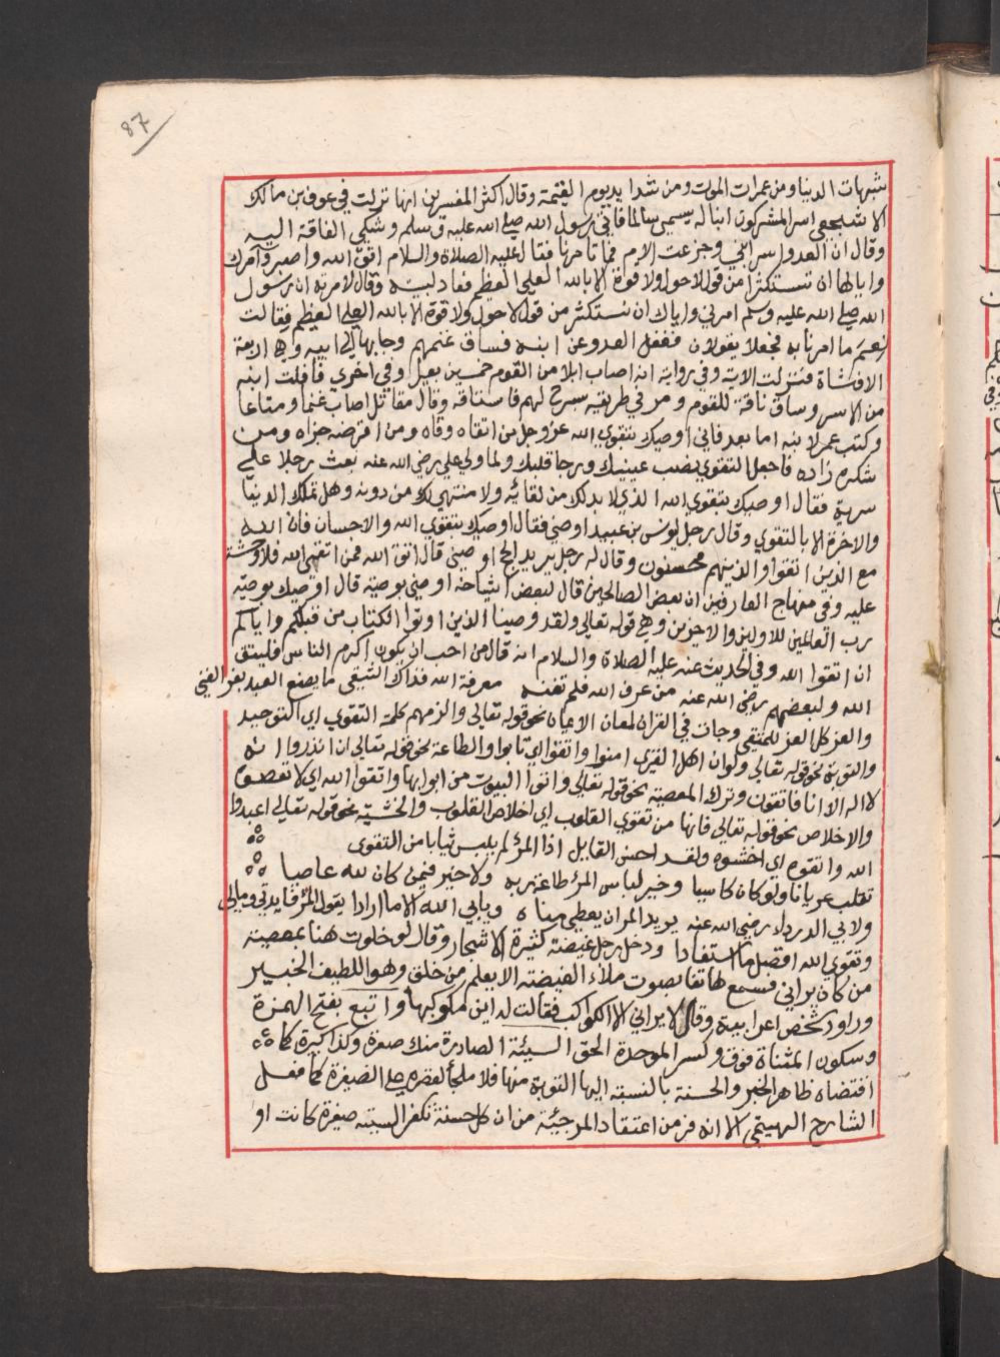 87
شبهات الدنيا ومن غمرات الموت ومن شدايد يوم القيمة وقال اكثر المفسرين انها نزلت في عوف بن مالك
الاشجعي اسر المشركون ابنا له يسمى سالما فاتي رسول الله صلى الله عليه وسلم وشكى الفاقة اليه
وقال ان العدو اسر ابني وجزعت الام فما تامرنا فقال عليه الصلاة والسلام اتق الله واصبر وآمرك
واياها ان تستكثرا من قول لاحول ولا قوة الا بالله العلي العظيم فعاد لبيته وقال لامرته ان رسول
الله صلى الله عليه وسلم امرني واياك ان نستكثر من قول لاحول ولا قوة الا بالله العلي العظيم فقالت
نعم ما امرنا به فجعلا يقولان فغفل العدو عن ابنه فساق غنمهم وجا بها الي ابيه وهي اربعة
الاف شاة فنزلت الاية وفي رواية انه اصاب ابلا من القوم خمسين بعيرا وفي اخري فافلت ابنه
من الاسر وساق ناقة للقوم ومر في طريقه بسرح لهم فاستاقه وقال مقاتل اصاب غنما ومتاعا
وكتب عمر لابنه اما بعد فاني اوصيك بتقوي الله عز وجل من اتقاه وقاه ومن اقرضه جزاه ومن
شكره زاده فاجعل التقوي نصب عينيك ورجا قلبك ولما ولي علي رضي الله عنه بعث رجلا علي
سرية فقال اوصيك بتقوي الله الذي لابد لك من لقائه ولا منتهي لك من دونه وهل تملك الدنيا
والاخرة الا بالتقوي وقال رجل ليونس بن عبيد اوصني فقال اوصيك بتقوي الله والاحسان فان الله
مع الذين اتقوا والذين هم محسنون وقال له رجل يريد الحج اوصيني قال اتق الله فمن اتقي الله فلا وحشة
عليه وفي منهاج العارفين ان بعض الصالحين قال لبعض اشياخه اوصني بوصية قال اوصيك بوصية
رب العالمين للاولين والاخرين وهي قوله تعالي ولقد وصينا الذين اوتوا الكتاب من قبلكم واياكم
ان اتقوا الله وفي الحديث عنه عليه الصلاة والسلام انه قال من احب ان يكون اكرم الناس فليتق
الله ولبعضهم رضي الله عنه من عرف الله فلم تغنه معرفة الله فذاك الشقي ما يصنع العبد بعز الغني
والعز كل العز للمتقي وجات في القران لمعان الايمان نحو قوله تعالي والزمهم كلمة التقوي اي التوحيد
والتوبة نحو قوله تعالي ولو ان اهل القري امنوا واتقوا اي تابوا والطاعة نحو قوله تعالي ان انذروا انه
لا اله الا انا فاتقون وترك المعصية نحو قوله تعالي واتوا البيوت من ابوابها واتقوا الله اي لا تعصوه
والاخلاص نحو قوله تعالي فانها من تقوي القلوب اي اخلاص القلوب والخشية نحو قوله تعالي اعبدوا
الله واتقوه اي اخشوه ولقد احسن القايل اذا المرؤ لم يلبس ثيابا من التقوى
تقلب عريانا ولو كان كاسيا وخير لباس المرؤ طاعة ربه ولا خير فيمن كان لله عاصيا
ولابي الدرداء رضي الله عنه يريد المران يعطي مناه ويابي الله الا ما ارادا يقول المرؤ فايدتي ومالي
وتقوي الله افضل ما استفادا ودخل رجل غيضة كثيرة الاشجار وقال لو خلوت هنا بمعصية
من كان يراني فسمع هاتفا بصوت ملاء الغيضة الا يعلم من خلق وهو اللطيف الخبير
وراود شخص اعرابية وقال لا يراني الا الكواكب فقالت له اين مكوكبها واتبع بفتح الهمزة
وسكون المثناة فوق وكسر الموحدة الحق السيئة الصادرة منك صغيرة وكذا كبيرة كما
اقتضاه ظاهر الخبر والحسنة بالنسبة اليها التوبة منها فلا ملجأ لقصره علي الصغيرة كما فعل
الشارح الهيتمي الا انه فر من اعتقاد المرجئة من ان كل حسنة تكفر السيئة صغيرة كانت او